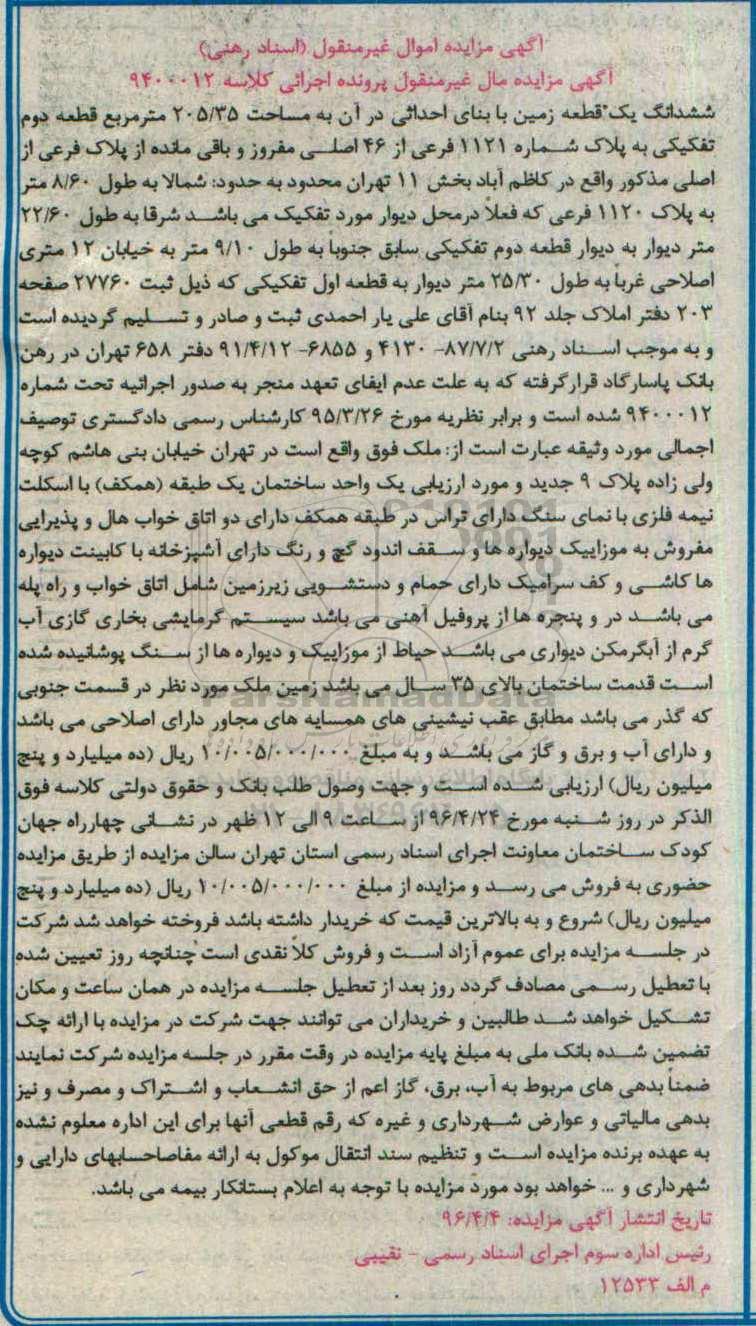 آگهی مزایده اموال غیرمنقول (اسناد رهنی)
آگهی مزایده مال غیرمنقول پرونده اجرائی کلاسه ۹۴۰۰۰۱۲
ششدانگ یک قطعه زمین با بنای احداثی در آن به مساحت ۲۰۵/۳۵ مترمربع قطعه دوم
تفکیکی به پلاک شماره ۱۱۲۱ فرعی از ۴۶ اصلی مفروز و باقی مانده از پلاک فرعی از
اصلی مذکور واقع در کاظم آباد بخش ۱۱ تهران محدود به حدود: شمالا به طول ۸/۶۰ متر
به پلاک ۱۱۲۰ فرعی که فعلاً درمحل دیوار مورد تفکیک می باشد شرقا به طول ۲۲/۶۰
متر دیوار به دیوار قطعه دوم تفکیکی سابق جنوباً به طول ۹/۱۰ متر به خیابان ۱۲ متری
اصلاحی غربا به طول ۲۵/۳۰ متر دیوار به قطعه اول تفکیکی که ذیل ثبت ۲۷۷۶۰ صفحه
۲۰۳ دفتر املاک جلد ۹۲ بنام آقای علی یار احمدی ثبت و صادر و تسلیم گردیده است
و به موجب اسناد رهنی ۸۷/۷/۲- ۴۱۳۰ و ۶۸۵۵- ۹۱/۴/۱۲ دفتر ۶۵۸ تهران در رهن
بانک پاسارگاد قرارگرفته که به علت عدم ایفای تعهد منجر به صدور اجرائیه تحت شماره
۹۴۰۰۰۱۲ شده است و برابر نظریه مورخ ۹۵/۳/۲۶ کارشناس رسمی دادگستری توصیف
اجمالی مورد وثیقه عبارت است از: ملک فوق واقع است در تهران خیابان بنی هاشم کوچه
ولی زاده پلاک ۹ جدید و مورد ارزیابی یک واحد ساختمان یک طبقه (همکف) با اسکلت
نیمه فلزی با نمای سنگ دارای تراس در طبقه همکف دارای دو اتاق خواب هال و پذیرایی
مفروش به موزاییک دیواره ها و سقف اندود گچ و رنگ دارای آشپزخانه با کابینت دیواره
ها کاشی و کف سرامیک دارای حمام و دستشویی زیرزمین شامل اتاق خواب و راه پله
می باشد در و پنجره ها از پروفیل آهنی می باشد سیستم گرمایشی بخاری گازی آب
گرم از آبگرمکن دیواری می باشد حیاط از موزاییک و دیواره ها از سنگ پوشانیده شده
است قدمت ساختمان بالای ۳۵ سال می باشد زمین ملک مورد نظر در قسمت جنوبی
که گذر می باشد مطابق عقب نیشینی های همسایه های مجاور دارای اصلاحی می باشد
و دارای آب و برق و گاز می باشد و به مبلغ ۱۰/۰۰۵/۰۰۰/۰۰۰ ریال (ده میلیارد و پنج
میلیون ریال) ارزیابی شده است و جهت وصول طلب بانک و حقوق دولتی کلاسه فوق
الذکر در روز شنبه مورخ ۹۶/۴/۲۴ از ساعت ۹ الی ۱۲ ظهر در نشانی چهارراه جهان
کودک ساختمان معاونت اجرای اسناد رسمی استان تهران سالن مزایده از طریق مزایده
حضوری به فروش می رسد و مزایده از مبلغ ۱۰/۰۰۵/۰۰۰/۰۰۰ ریال (ده میلیارد و پنج
میلیون ریال) شروع و به بالاترین قیمت که خریدار داشته باشد فروخته خواهد شد شرکت
در جلسه مزایده برای عموم آزاد است و فروش کلاً نقدی است چنانچه روز تعیین شده
با تعطیل رسمی مصادف گردد روز بعد از تعطیل جلسه مزایده در همان ساعت و مکان
تشکیل خواهد شد طالبین و خریداران می توانند جهت شرکت در مزایده با ارائه چک
تضمین شده بانک ملی به مبلغ پایه مزایده در وقت مقرر در جلسه مزایده شرکت نمایند
ضمناً بدهی های مربوط به آب، برق، گاز اعم از حق انشعاب و اشتراک و مصرف و نیز
بدهی مالیاتی و عوارض شهرداری و غیره که رقم قطعی آنها برای این اداره معلوم نشده
به عهده برنده مزایده است و تنظیم سند انتقال موکول به ارائه مفاصاحسابهای دارایی و
شهرداری و ... خواهد بود مورد مزایده با توجه به اعلام بستانکار بیمه می باشد.
تاریخ انتشار آگهی مزایده: ۹۶/۴/۴
رئیس اداره سوم اجرای اسناد رسمی - نقیبی
م الف ۱۲۵۳۳
ParsNamadData